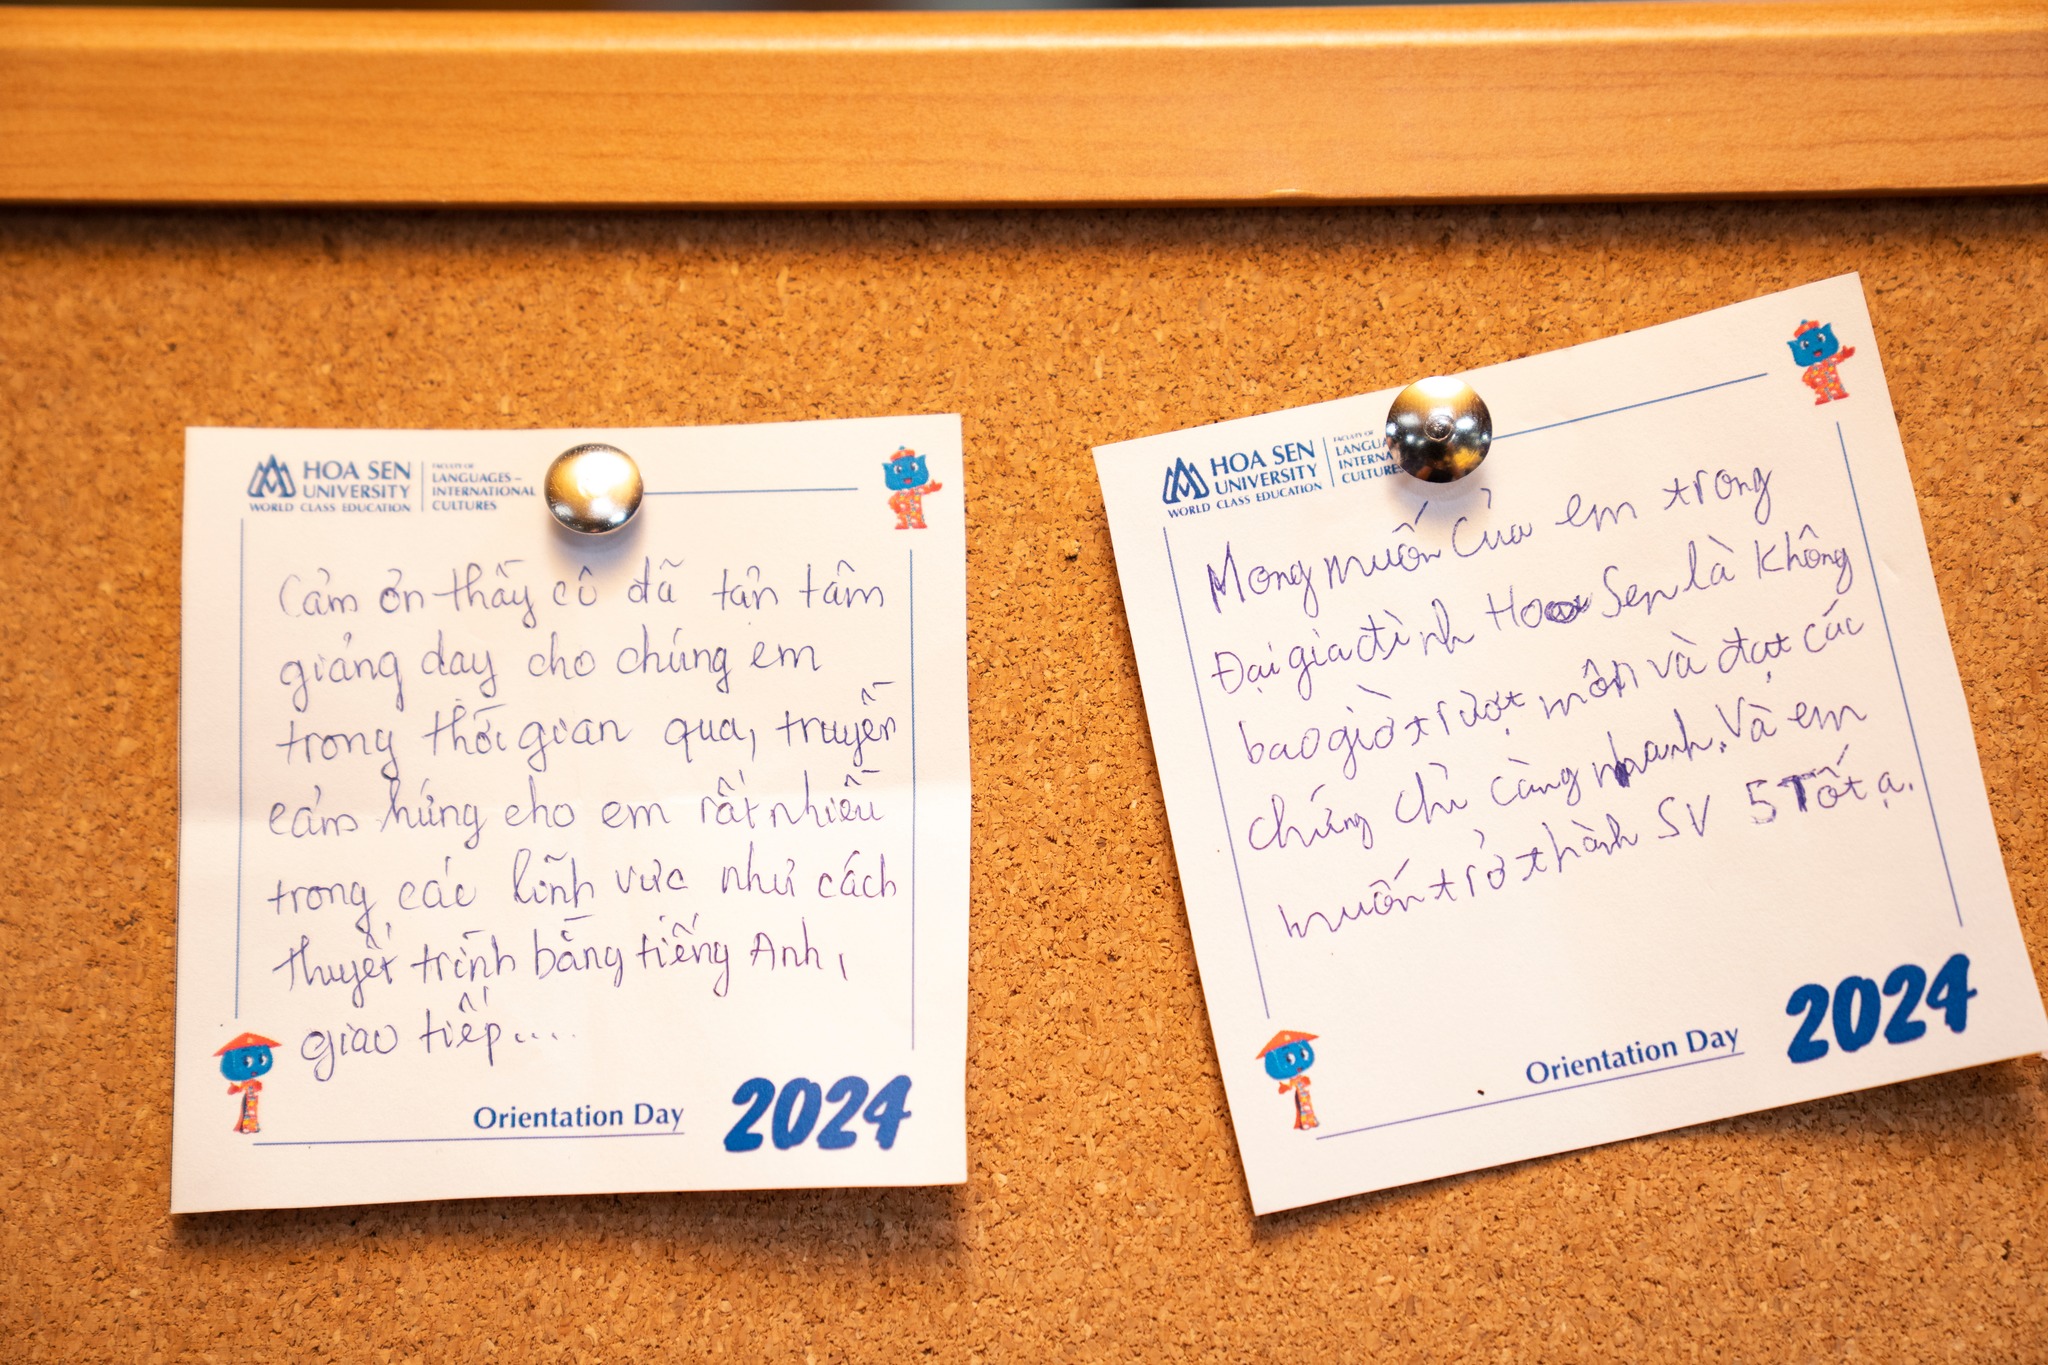 HOA SEN
UNIVERSITY
WORLD CLASS EDUCATION
FACULTY OF
LANGUAGES –
INTERNATIONAL
CULTURES
Cảm ơn thầy cô đã tận tâm
giảng day cho chúng em
trong thời gian qua, truyền
cảm hứng cho em rất nhiều
trong các lĩnh vưc như cách
thuyết trình bằng tiếng Anh,
giao tiếp....
Orientation Day
2024
HOA SEN
UNIVERSITY
WORLD CLASS EDUCATION
FACULTY OF
LANGUA
INTERNA
CULTURES
Mong muốn Của em trong
Đại gia đình Hoa Sen là Không
bao giờ trượt môn và đạt các
chứng chỉ càng nhanh. Và em
muốn trở thành SV 5 Tốt ạ.
Orientation Day
2024